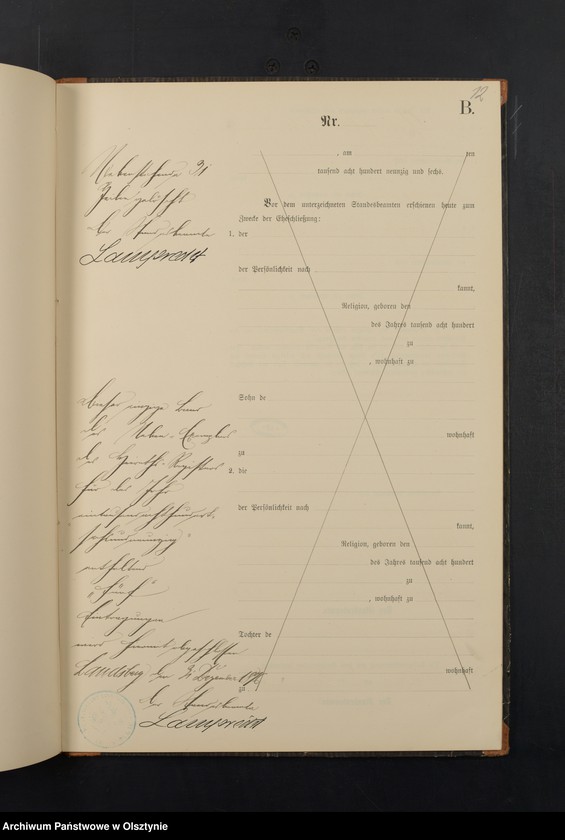 12
B.
Nr.
Nebenstehende 31
, am ten
tausend acht hundert neunzig und sechs.
Vor dem unterzeichneten Standesbeamten erschienen heute zum
Zwecke der Eheschließung:
Der Standesbeamte
1. der
der Persönlichkeit nach
kannt,
Religion, geboren den
des Jahres tausend acht hundert
zu
, wohnhaft zu
Sohn de
wohnhaft
zu
2. die
der Persönlichkeit nach
kannt,
Religion, geboren den
des Jahres tausend acht hundert
zu
, wohnhaft zu
Tochter de
wohnhaft
zu
der Neben-Exemplar
des Heirats-Registers
für das Jahr
eintausendachthundert-
sechsundneunzig
enthaltend
"fünf"
Eintragungen
wird hiermit abgeschlossen
Landsberg den 31 Dezember 1896
Der Standesbeamte
Archiwum Państwowe w Olsztynie